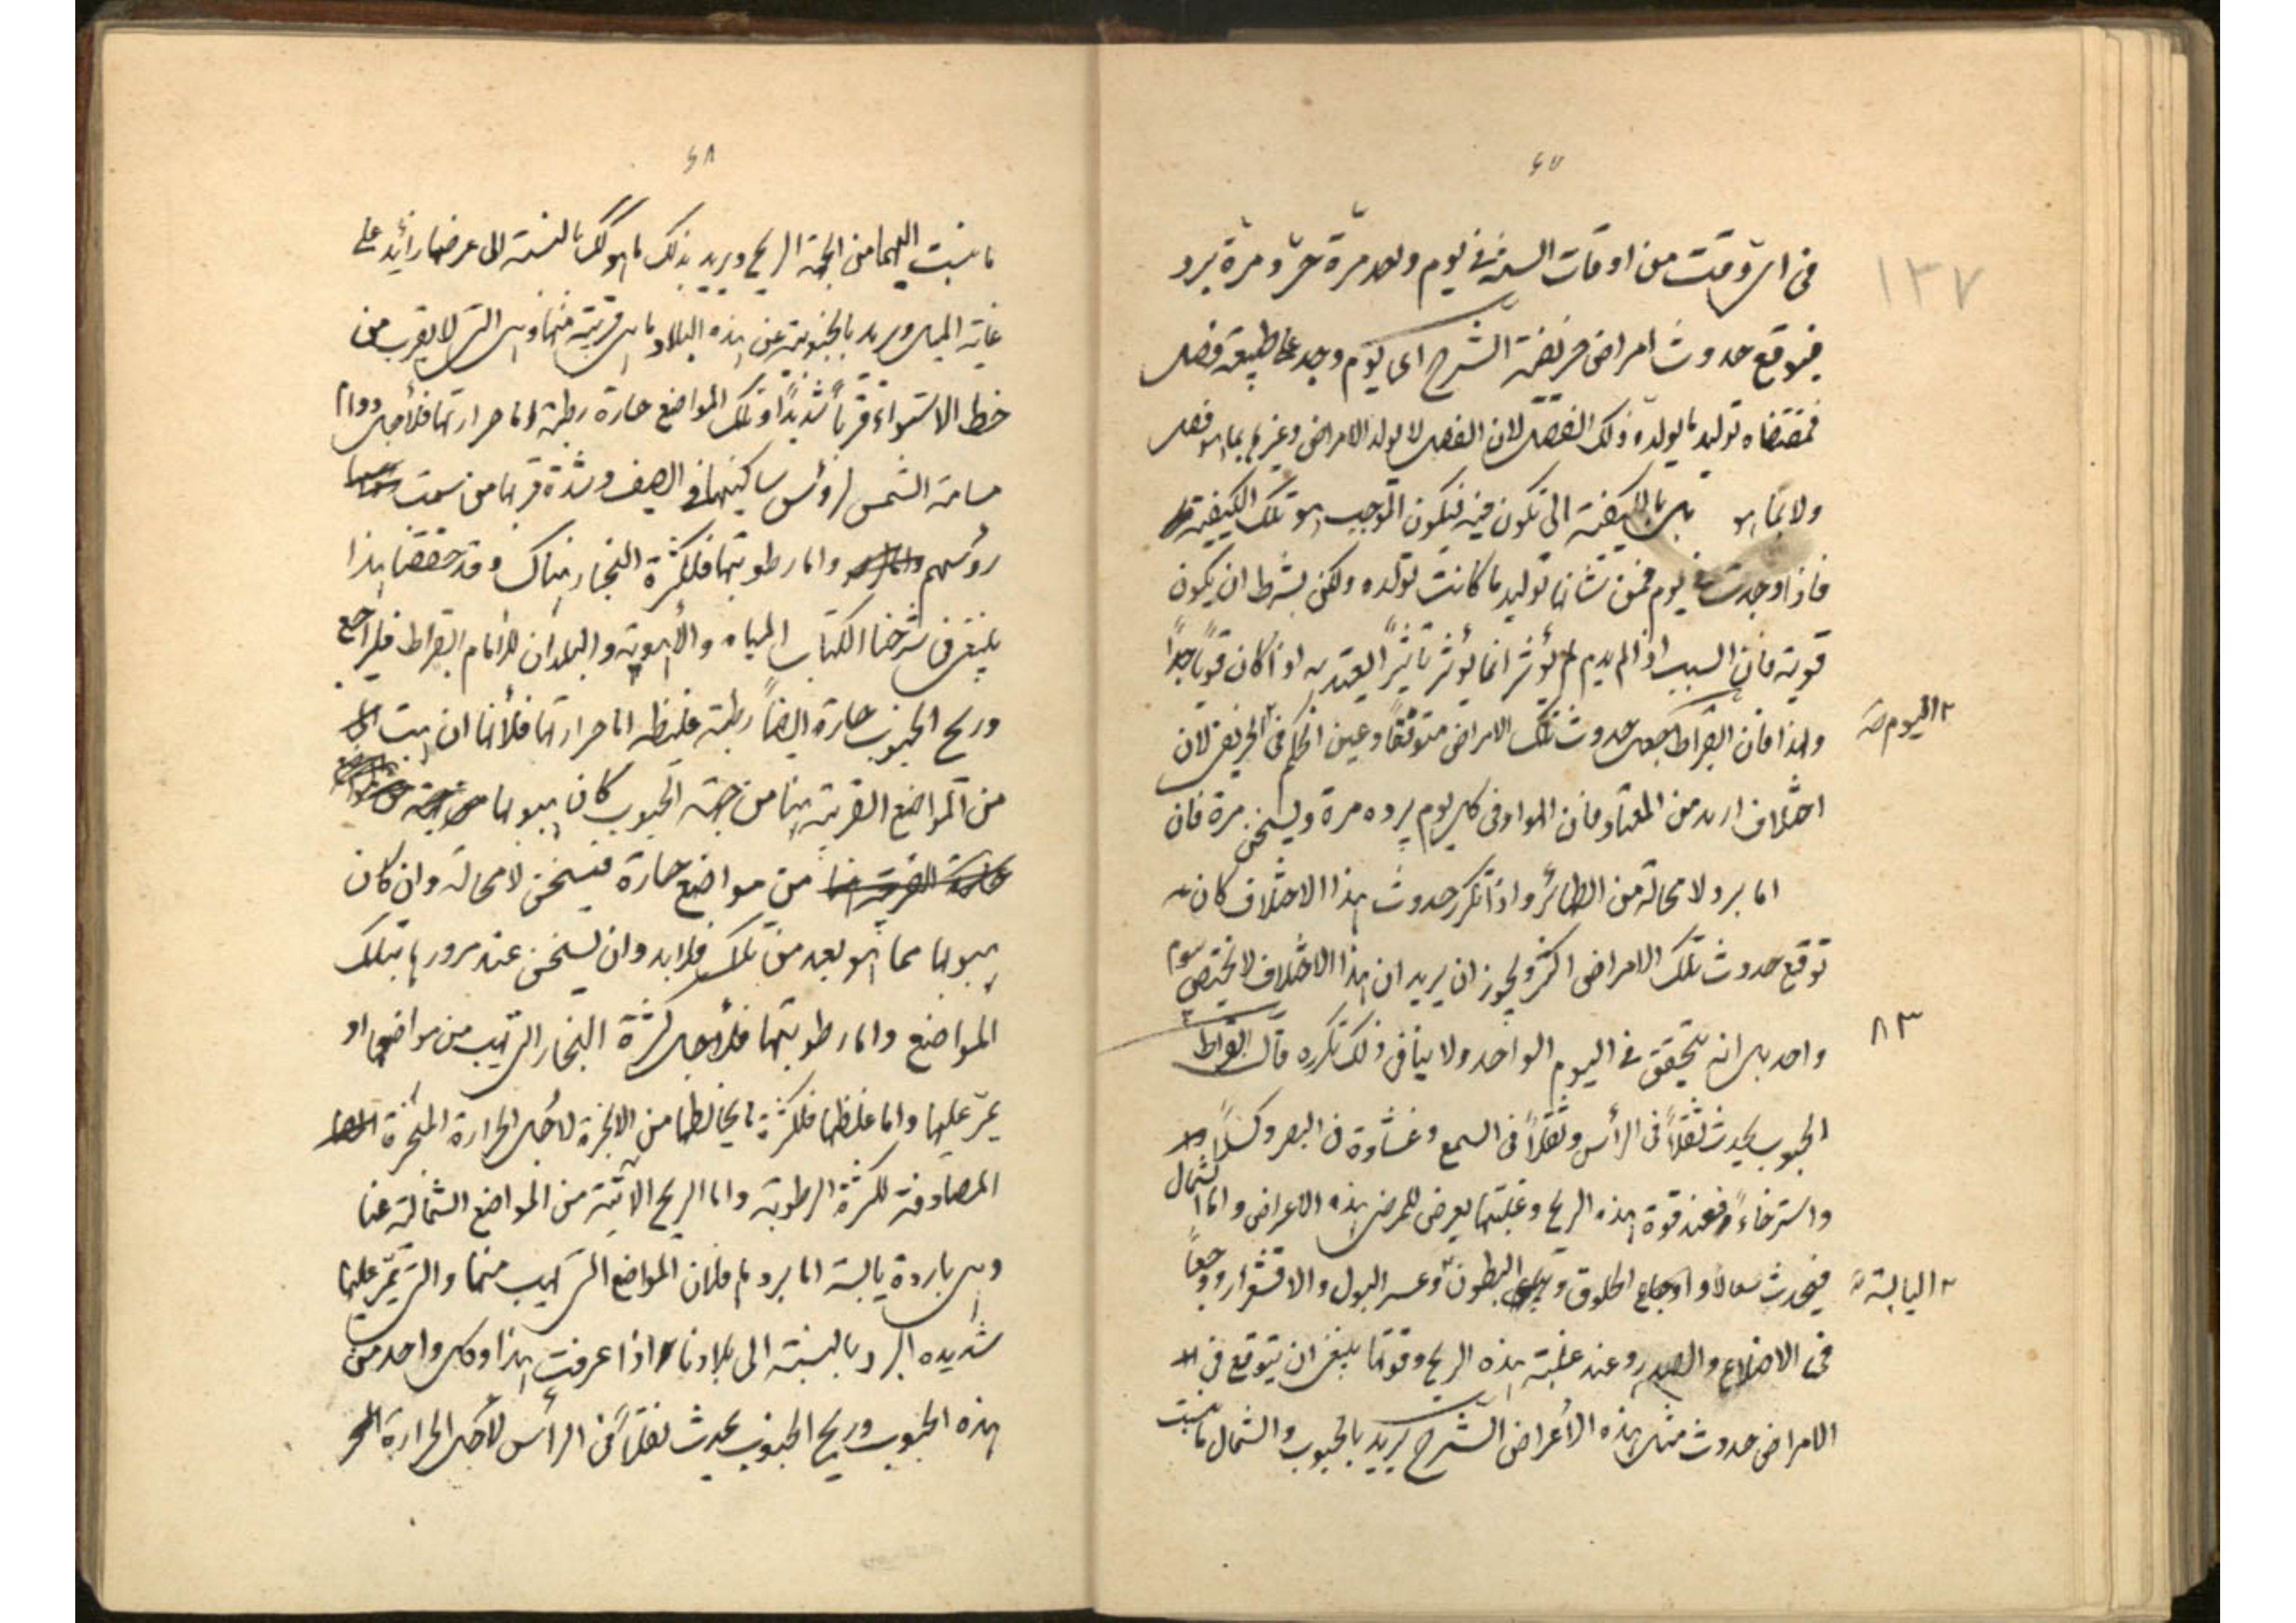 ٤٧
في اي وقت من اوقات السنة في يوم واحد مرة حر ومرة برد
فتوقع حدوث امراض خريفية الشرح اى يوم وجد على طبيعة فصل
فمقتضاه توليد ما يولده ذلك الفصل لان الفصل لا يولد الامراض وغيرها بما هو فصل
ولا بما هو بل بالكيفية التي تكون فيه فيكون الموجب هو تلك الكيفية
فاذا وجدت في يوم فمن شانها توليد ما كانت تولده ولكن بشرط ان يكون
قوية فان السبب اذا لم يدم لم يؤثر انما يؤثر تاثيرا يعتد به اذا كان قويا جدا
ولهذا فان ابقراط جعل حدوث تلك الامراض متوقعا وعين الحكم في الخريف لان
٢ اليوم صح
اختلاف ازيد من المعتاد فان الهواء في كل يوم يبرد مرة ويسخن مرة فان
اما برد لا محالة من الظهائر واذا تكرر حدوث هذا الاختلاف كان
توقع حدوث تلك الامراض اكثر ويجوز ان يريد ان هذا الاختلاف لا يختص بيوم
واحد بل انه يتحقق في اليوم الواحد ولا ينافي ذلك تكرره قال ابقراط
٨٣
الجنوب يحدث ثقلا في الرأس وثقلا في السمع وغشاوة في البصر وكسلا
واسترخاء فعند قوة هذه الريح وغلبتها يعرض للمرضى هذه الاعراض واما الشمال
فيحدث سعالا واوجاع الحلوق و البطون وعسر البول والاقشعرار ووجعا
٢ اليابسة
في الاضلاع والصدر وعند غلبة هذه الريح وقوتها ينبغي ان يتوقع في
الامراض حدوث مثل هذه الأعراض الشرح يريد بالجنوب والشمال ما ينسب
١٣٧
٤٨
ما ينسب اليهما من الجهة الريح ويريد بذلك ما هو كك بالنسبة الى عرضها رائد على
غاية الميل ويريد بالجنوبية عن هذه البلاد ما هي قريبة منها وهي التي لا يقرب من
خط الاستواء قربا شديدا وتلك المواضع حارة رطبة اما حرارتها فلأجل دوام
مسامتة الشمس لرؤس ساكنيها في الصيف وشدة قربها من سمت
رؤسهم واما رطوبتها فلكثرة البخار هناك وقد حققنا هذا
في شرحنا الكتاب المياه والأهوية والبلدان للامام ابقراط فليراجع
وريح الجنوب حارة ايضا رطبة غليظه اما حرارتها فلأنها ان هبت
من المواضع القريبة منا من جهة الجنوب كان هبوبها
من مواضع حارة فيسخن لا محالة وان كان
هبوبها مما هو بعيد من تلك فلابد وان يسخن عند مرورها بتلك
المواضع واما رطوبتها فلأجل كثرة البخار التي تهب من مواضعها او
يمر عليها واما غلظها فلكثرة ما يخالطها من الابخرة لأجل الحرارة المبخرة
المصادفة لكثرة الرطوبة واما الريح الآتية من المواضع الشمالية عنا
وهي باردة يابسة اما بردها فلان المواضع التي تهب منها والتي تمر عليها
شديده البرد بالنسبة الى بلادنا اذا عرفت هذا وكل واحد من
هذه الجنوب وريح الجنوب يحدث ثقلا في الرأس لأجل الحرارة